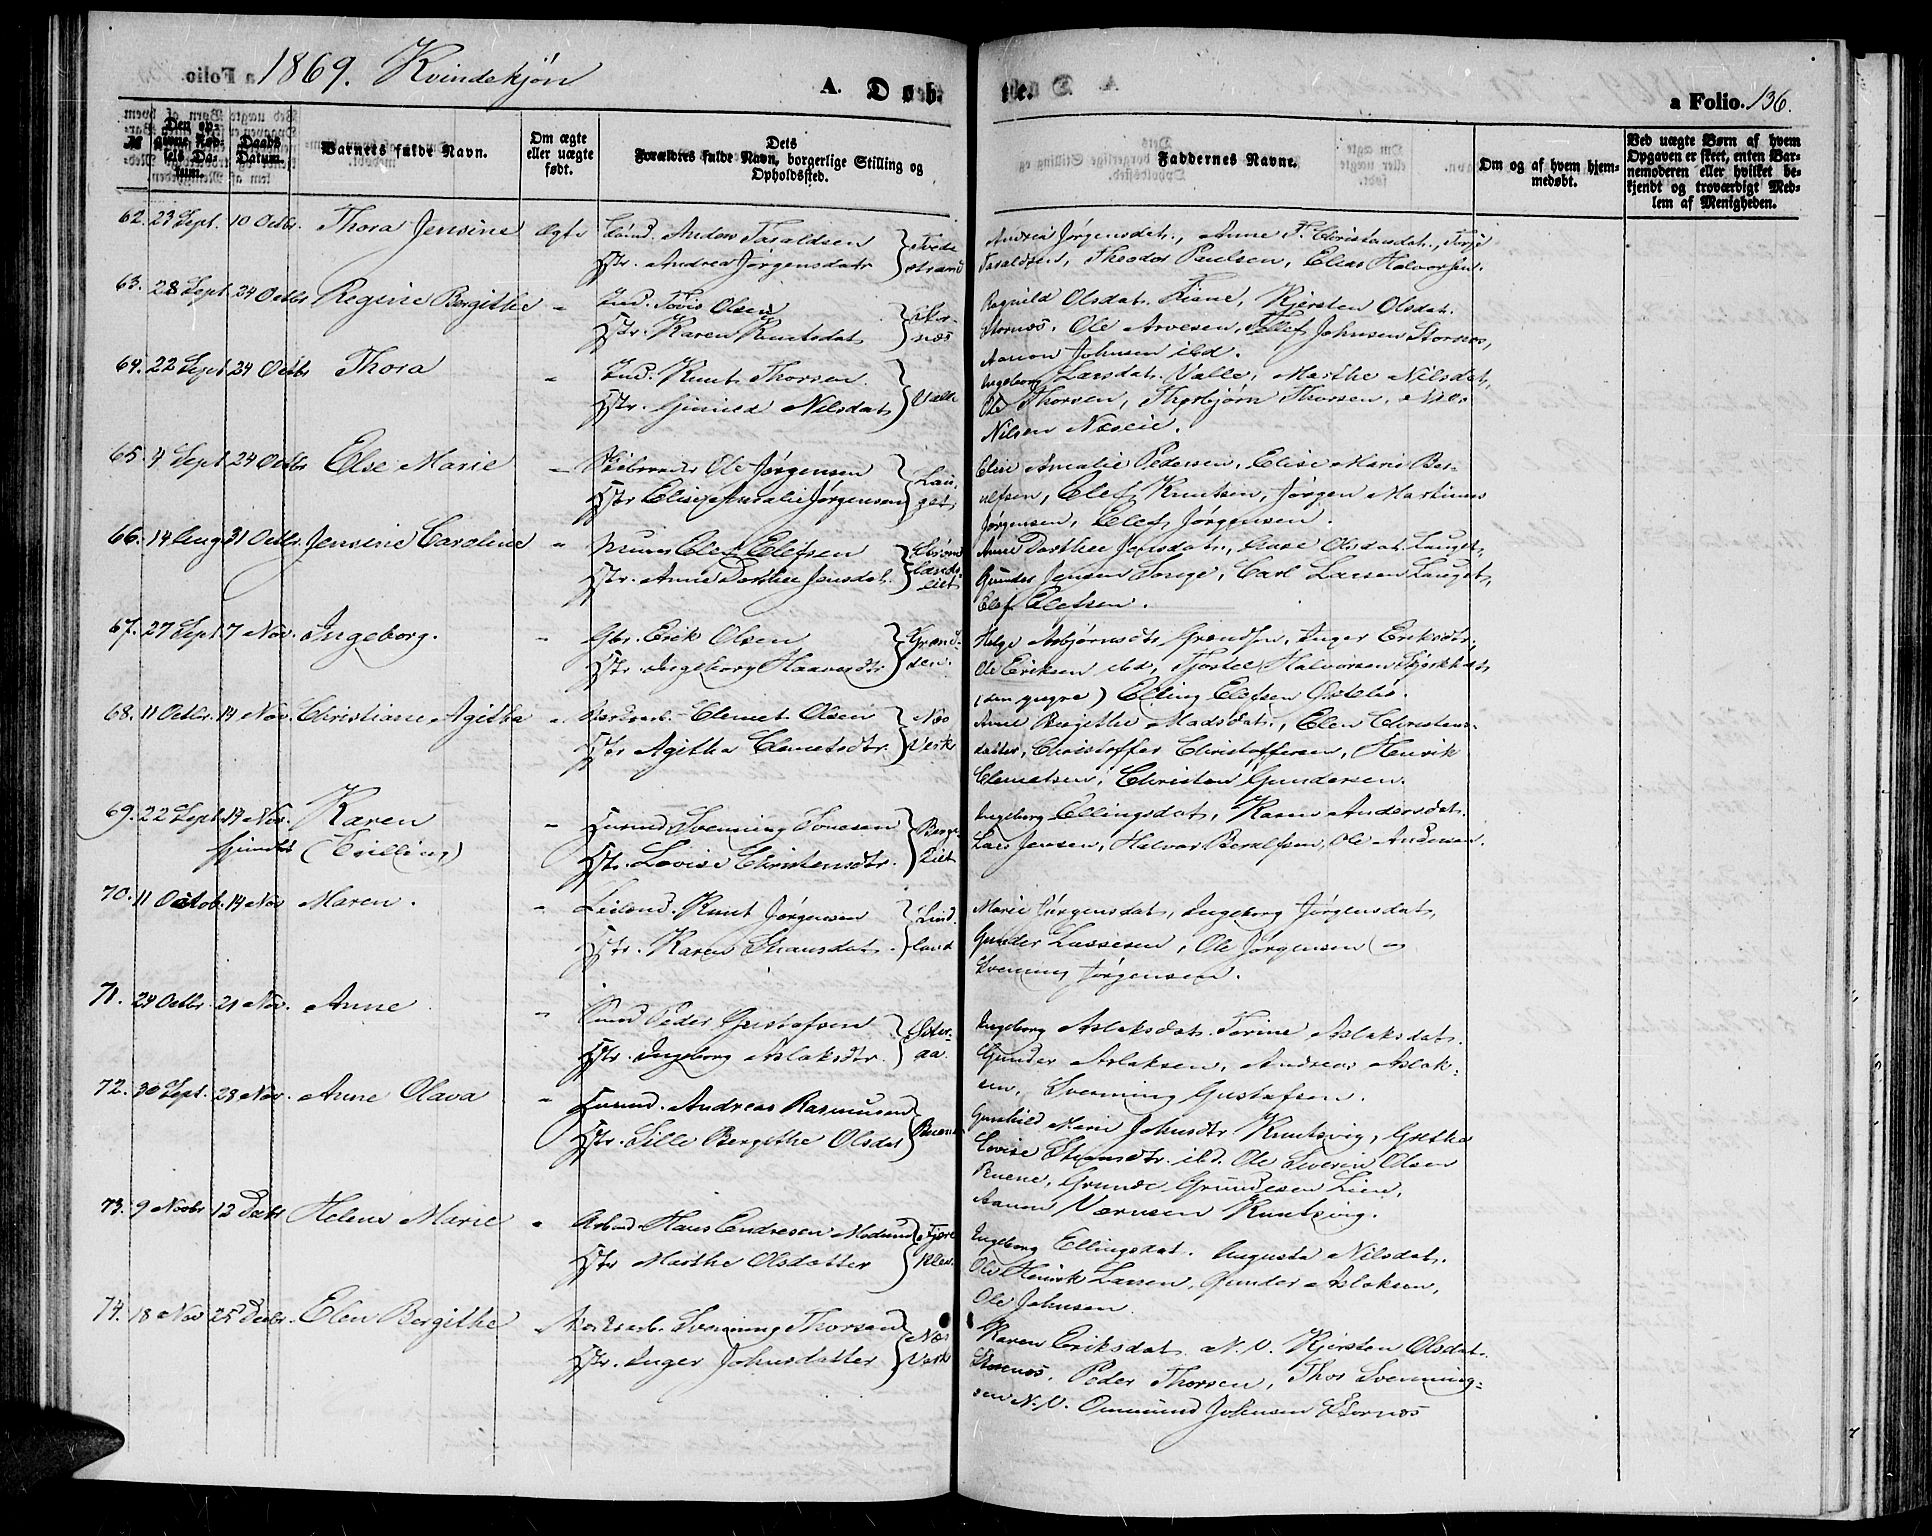 1869. Kvindekjøn
A. Døb-
te.
a Folio. 136.
№
Den opgivne Fødsels Datum.
Daabs Datum.
Barnets fulde Navn.
Om ægte eller uægte født.
Dets Forældres fulde Navn, borgerlige Stilling og Opholdssted.
Faddernes Navne.
Om og af hvem hjemmedøbt.
Ved uægte Børn af hvem Opgaven er skeet, enten Barnemoderen eller hvilket bekjendt og troværdigt Medlem af Menigheden.
62. 23 Sept. 10 Octbr. Thora Jensine Ægte Anders Taraldsen Tvede-
Hstr. Andrea Jørgensdatr strand
Andrea Jørgensdat., Anne Christensdat., Terje
Taraldsen, Theodor Paulsen, Elias Halvorsen.
63. 28 Sept. 24 Octbr Regine Bergithe " Ind. Olsen Stor-
Hstr. Karen Knutsdat. næs
Ragnild Olsdat. Fiane, Kjersten Olsdat.
Stornæs. Ole Arvesen, Tellef Johnsen Stornæs,
Aanon Johnsen ibd.
64. 22 Sept 24 Octbr Thora " Ind. Knut Thorsen. Valle
Hstr. Gunild Nilsdat.
Ingeborg Larsdat. Valle, Marthe Nilsdat,
Ole Thorsen, Thorbjørn Thorsen,
Nilsen Næseie.
65. 4 Sept. 24 Octbr Else Marie " Ole Jørgensen Lau-
Hstr Elise Amalie Jørgensen get
Elise Amalie Pedersen, Elise Marie Ber-
ulfsen, Elef Knutsen, Jørgen Martinus
Jørgensen, Elef Jørgensen.
66. 14 Aug 31 Octbr. Jensine Caroline " Murer Elef Elefsen
Hstr. Anne Dorthea Jensdat.
Anne Dorthea Jensdat., Aase Olsdat. Lauget,
Gunder Jensen Songe, Carl Larsen Lauget,
Elef Elefsen.
67. 27 Sept. 7 Nov. Ingeborg. " Gbr. Erik Olsen Grønd-
Hstr Ingeborg Haaversdtr sen.
Helge Asbjørnsdtr Grøndsen, Inger Eriksdtr.
Ole Eriksen ibd, Tjostel Halvorsen
(den yngre) Elling Elefsen
68. 11 Octbr. 14 Nov. Christiane Agithe " Clemet Olsen Næs
Hstr Agithe Clemetsdtr. Verk
Anne Bergithe Madsdat., Elen Christens-
datter, Christoffer Christoffersen, Henrik
Clemetsen, Christen Gundersen.
69. 22 Sept. 14 Nov. Karen " Husmd Svenning Tovesen Berge-
(Tvilling) Hstr. Lovise Christensdtr. liet
Ingeborg Ellingsdat, Karen Andersdat.
Lars Jensen, Halvor Berulfsen, Ole Andersen.
70. 11 Octob. 14 Nov Maren. " Leilænd. Knut Jørgensen Lind-
Hstr. Karen land
Marie Jørgensdat, Ingeborg Jørgensdat,
Gunder Lassesen, Ole Jørgensen
Svenning Jørgensen.
71. 24 Octbr. 21 Nov. Anne " Peder Gustafsen Oster-
Hstr. Ingeborg Aslaksdtr. aa.
Ingeborg Aslaksdat. Torine Aslaksdat.
Gunder Aslaksen, Andreas Aslak-
sen, Svenning Gustafsen.
72. 30 Sept. 28 Nov. Anne Olava " Husmd. Andreas Rasmusen Buene
Hstr. Sille Bergithe Olsdat
Gunhild Marie Johnsdtr Knutsvig, Grethe
Lovise ibd. Ole Severin Olsen
Buene, Grunde Grundesen Lien,
Aanon Knutsvig.
73. 9 Novbr 12 Decbr Helene Marie " Hans Endresen Fjære
Hstr Marthe Olsdatter Klev.
Ingeborg Ellingsdat. Augusta Nilsdat.
Ole Henrik Larsen, Gunder Aslaksen,
Ole Johnsen.
74. 18 Nov 25 Decbr. Elen Bergithe " Svenning Thorsen Næs
Hstr. Inger Johnsdatter Verk
Karen Eriksdat. N. V. Kjersten Olsdat.
Stornæs, Peder Thorsen, Thor Svenning-
sen N. V. Ommund Johnsen Stornæs